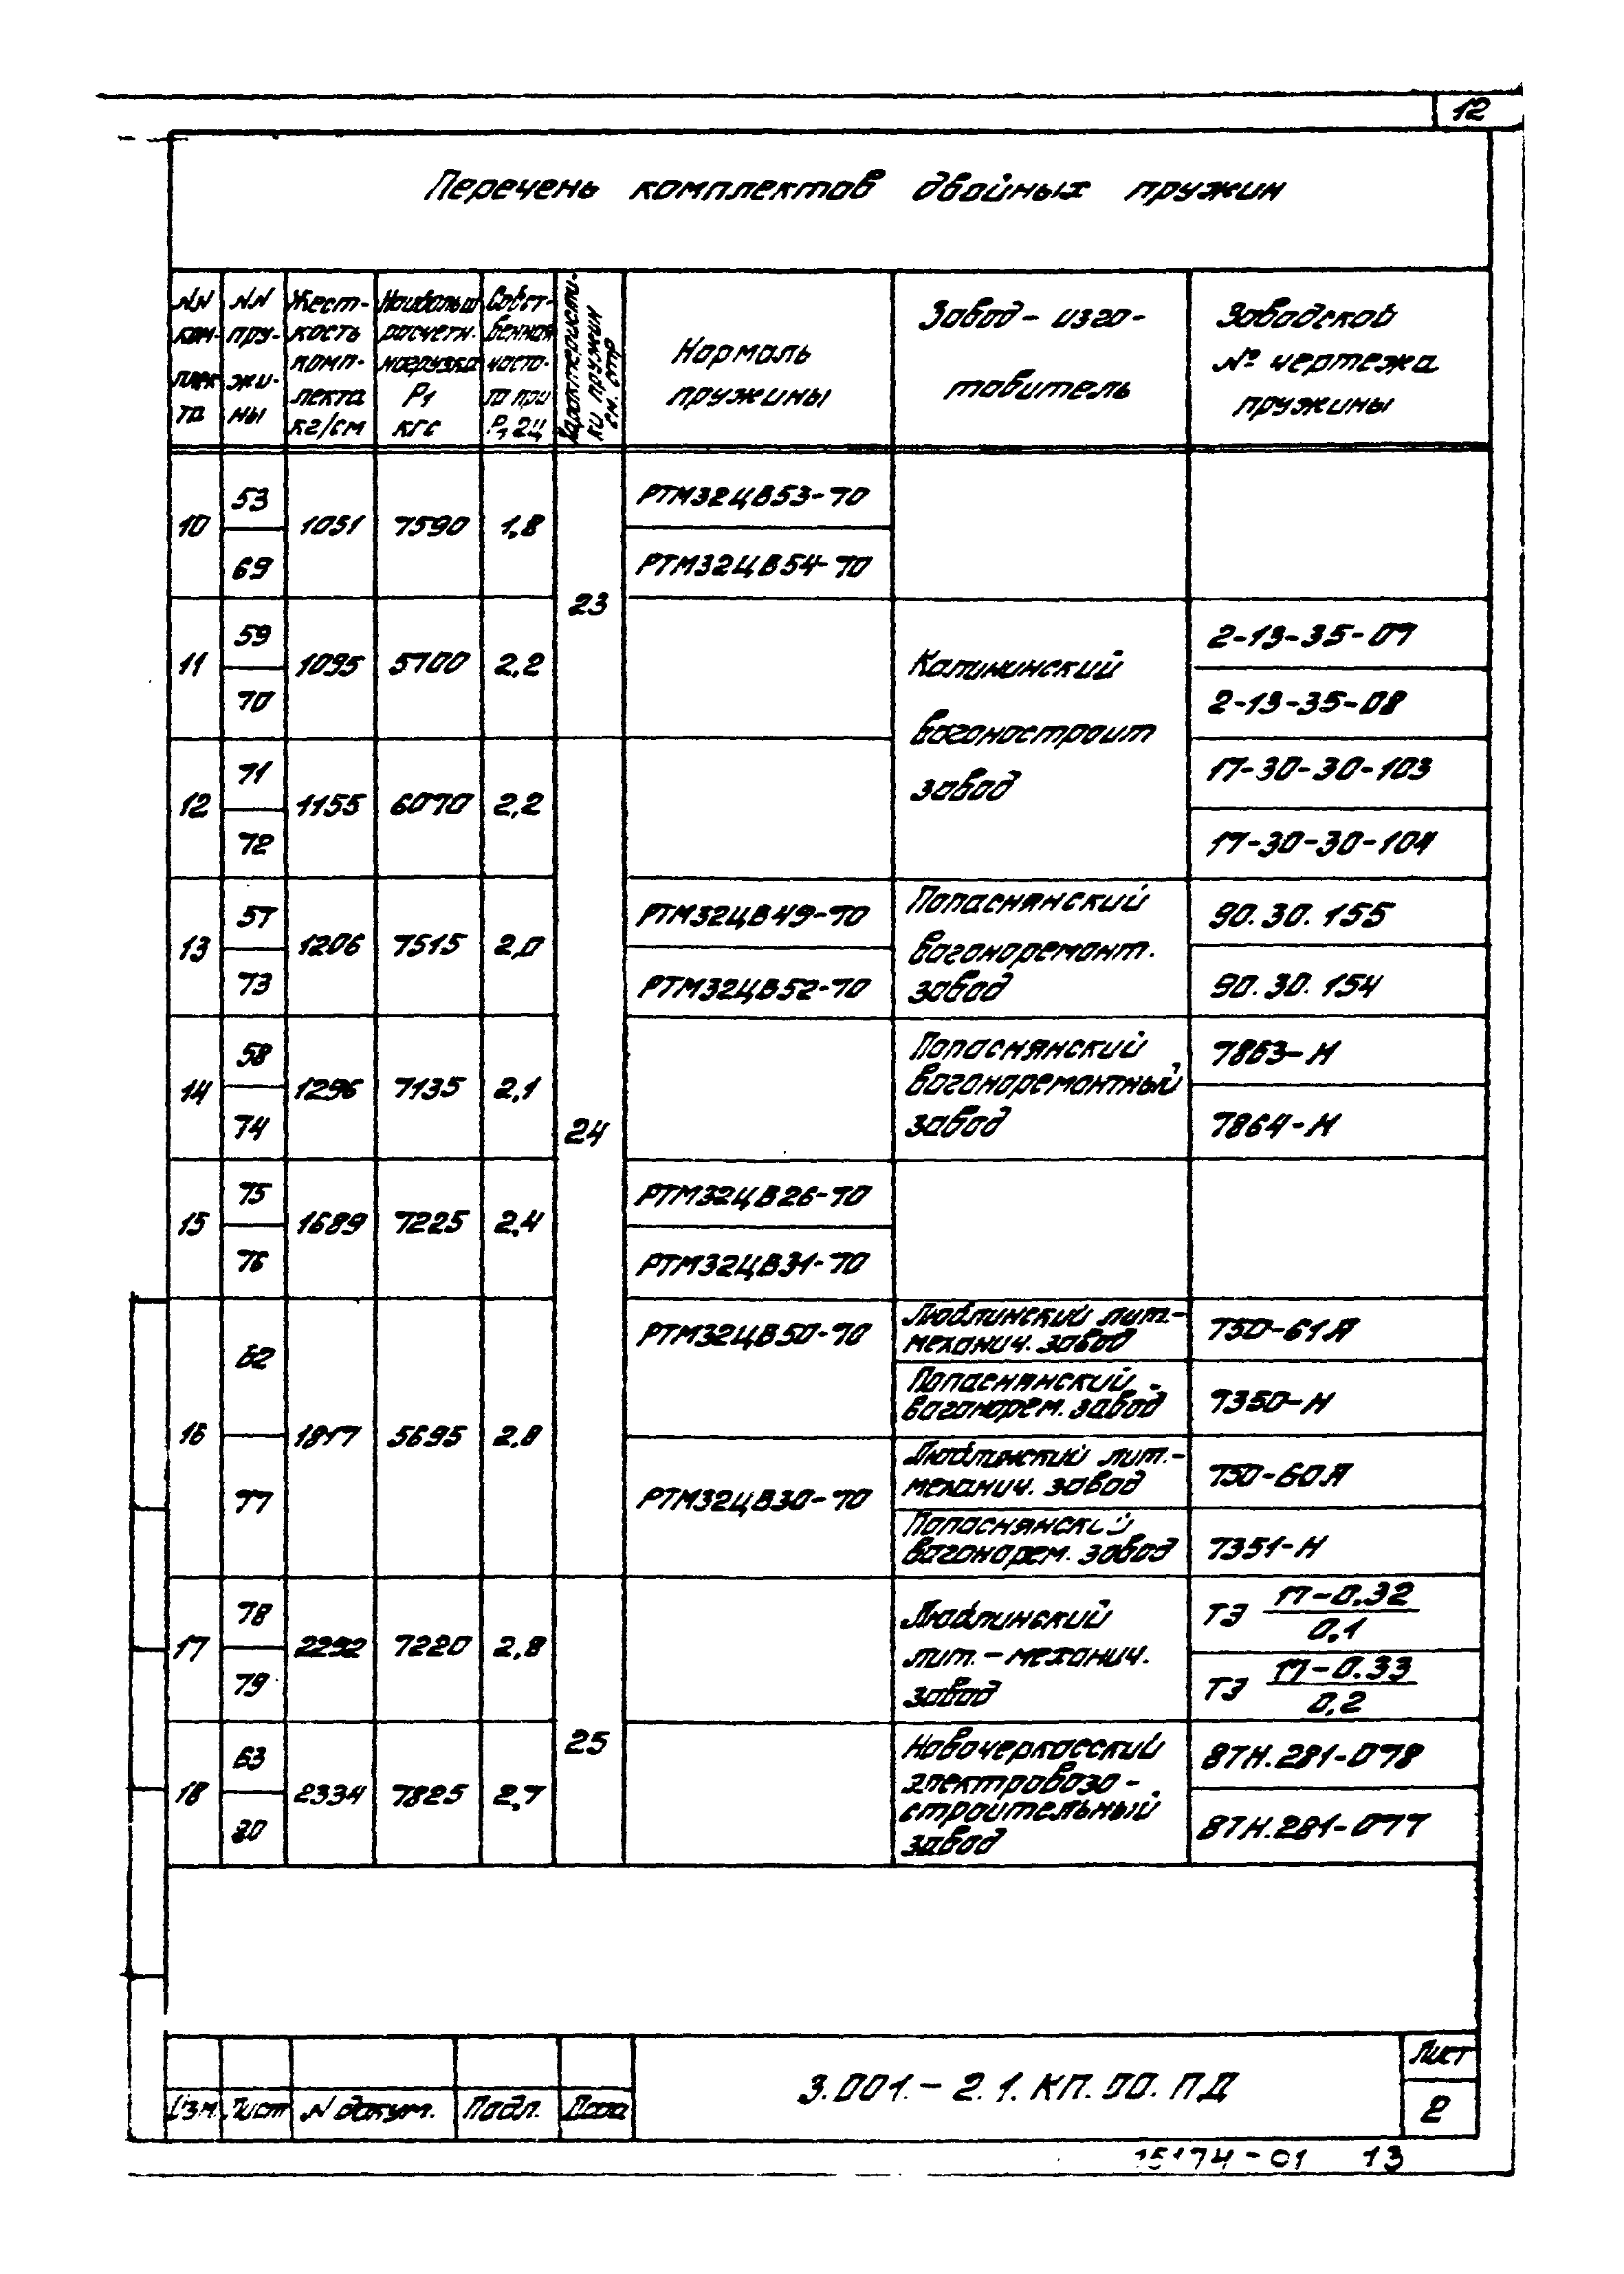 12
Перечень комплектов двойных пружин
NN ком- плек та
NN пру- жи- ны
Жест- кость комп- лекта кг/см
Наибольш расчетн. нагрузка P1 кгс
Собст- венная часто- та при P1 гц
Характеристи- ки пружин см. стр
Нормаль пружины
Завод-изго- товитель
Заводской № чертежа пружины
10 53 1051 7590 1,8 23 РТМ32ЦВ53-70
69 РТМ32ЦВ54-70
11 59 1095 5700 2,2 Калининский вагоностроит завод 2-13-35-07
70 2-13-35-08
12 71 1155 6070 2,2 17-30-30-103
72 17-30-30-104
13 57 1206 7515 2,0 24 РТМ32ЦВ49-70 Попаснянский вагоноремонт. завод 90.30.155
73 РТМ32ЦВ52-70 90.30.154
14 58 1296 7135 2,1 Попаснянский вагоноремонтный завод 7863-Н
74 7864-Н
15 75 1689 7225 2,4 РТМ32ЦВ26-70
76 РТМ32ЦВ31-70
16 62 1817 5695 2,8 РТМ32ЦВ50-70 Люблинский лит.- механич. завод 750-61А
Попаснянский вагонорем. завод 7350-Н
77 РТМ32ЦВ30-70 Люблинский лит.- механич. завод 750-60А
Попаснянский вагонорем. завод 7351-Н
17 78 2292 7220 2,8 25 Люблинский лит.-механич. завод ТЭ 17-0.32 / 0.1
79 ТЭ 17-0.33 / 0.2
18 63 2334 7825 2,7 Новочеркасский электровозо- строительный завод 8ТН.281-078
80 8ТН.281-077
Изм. Лист N докум. Подп. Дата
3.001.-2.1.КП.00.ПД
Лист
2
15174-01 13